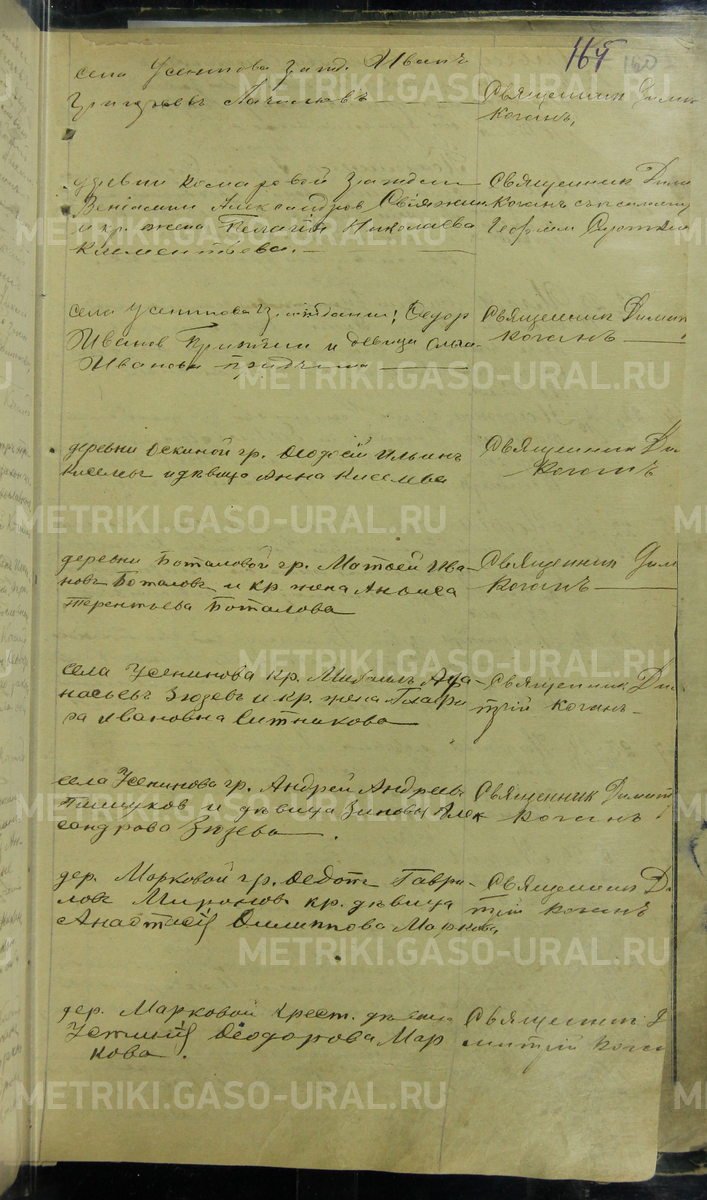 164 160
села Усенинова гражд. Иванъ
Григорьевъ
Священник Дими
Коганъ,
деревни Комаровой граждан
Вениамин Александров
и кр. жена Пелагия Николаева
Клементьева.
Священник Дими
Коганъ съ псаломщ
Георгием
села Усенинова граждании; Федор
Иванов и девица Ольга
Иванова
Священник Димит
Коганъ
деревни гр. Феодосий Ильинъ
и дѣвица Анна Киселева
Священник Ди
Коганъ
деревни Боталовой гр. Матвей Ива
новъ Боталовъ и кр жена Анфиса
Терентьева Боталова
Священник Дим
Коганъ
села Усенинова кр. Михаилъ Афа
насьевъ Зюзевъ и кр. жена Глафи
ра Ивановна Ситникова
Священник Дми
трий Коганъ
села Усенинова гр. Андрей Андреевъ
и дѣвица Зиновья Алек
сандрова Зюзева.
Священник Димит
Коганъ
дер. Марковой гр. Федотъ Гаври-
ловъ Миронов кр. дѣвица
Анастасия Филиппова Маркова,
Священник Д
трий Коганъ
дер. Марковой крест. дѣвица
Устиния Феодорова Мар
кова.
Священник Д
митрий Коган
METRIKI.GASO-URAL.RU